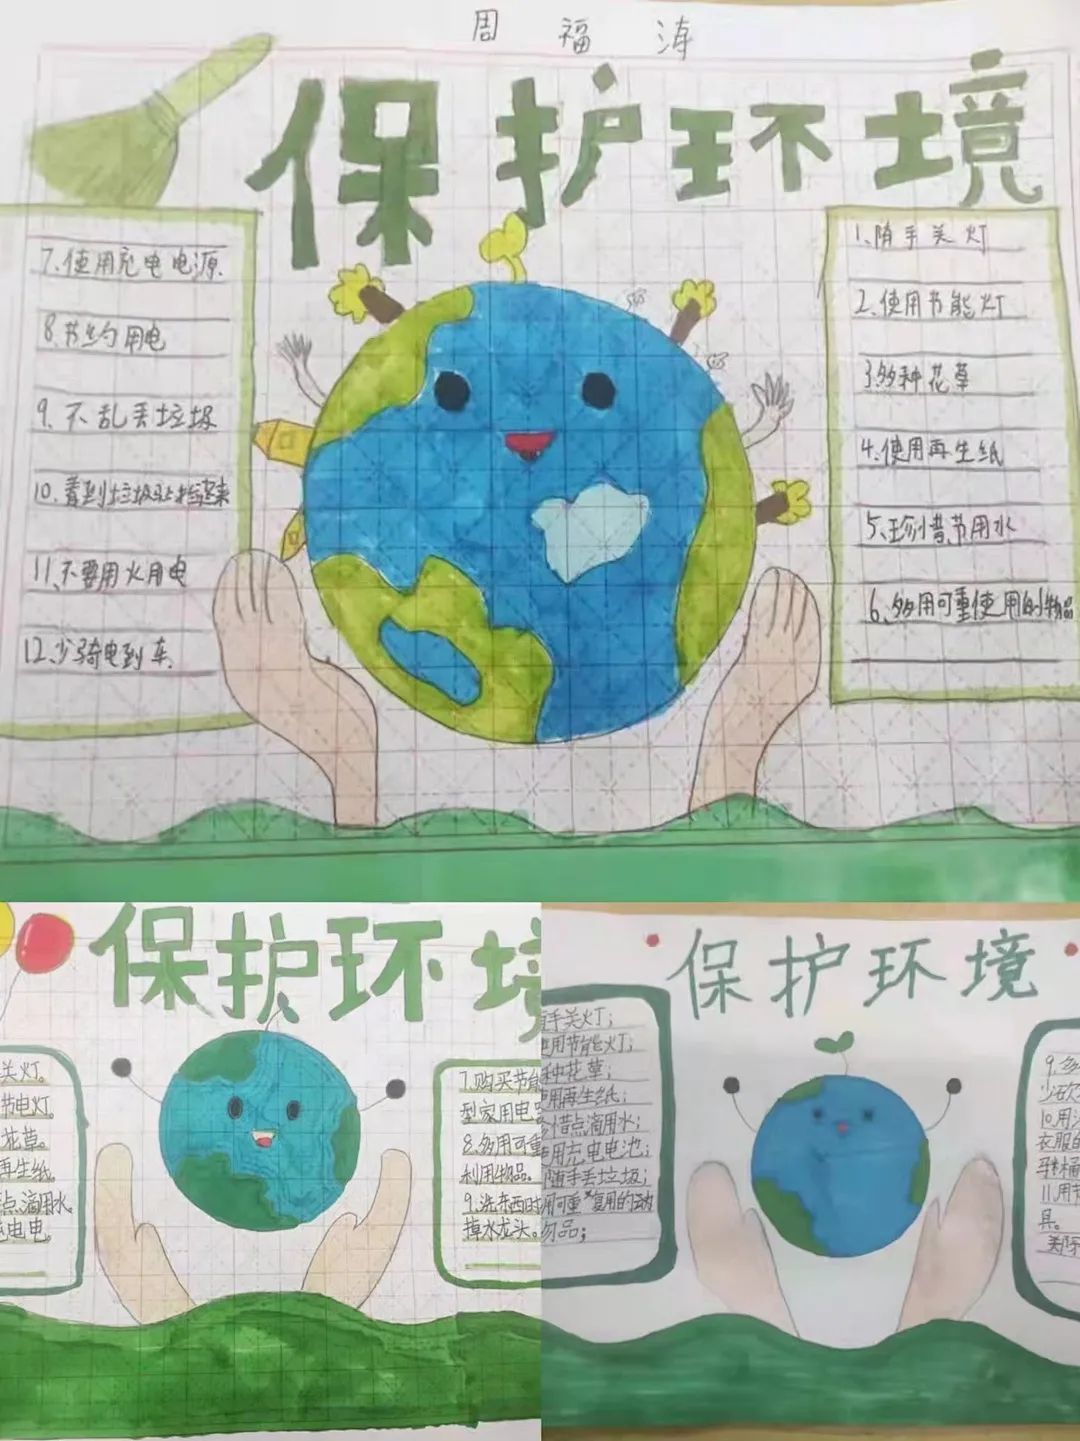 周福涛
保护环境
7.使用充电电源.
8.节约用电
9.不乱丢垃圾
10.看到垃圾要捡起来
11.不要用火用电
12.少骑电到车.
1.随手关灯
2.使用节能灯
3.多种花草
4.使用再生纸
5.珍惜节用水
6.多用可重使用的物品
保护环境
关灯。
节电灯.
花草。
再生纸.
点滴用水.
电电。
7.购买节能
型家用电器
8.多用可重
利用物品。
9.洗东西时
掉水龙头。
保护环境
随手关灯；
使用节能灯；
种花草；
使用再生纸；
惜点滴用水；
用充电电池；
随手丢垃圾；
用可重复用的
物品；
9.多
少砍
10.用
衣服的
桶
11.用节
具。